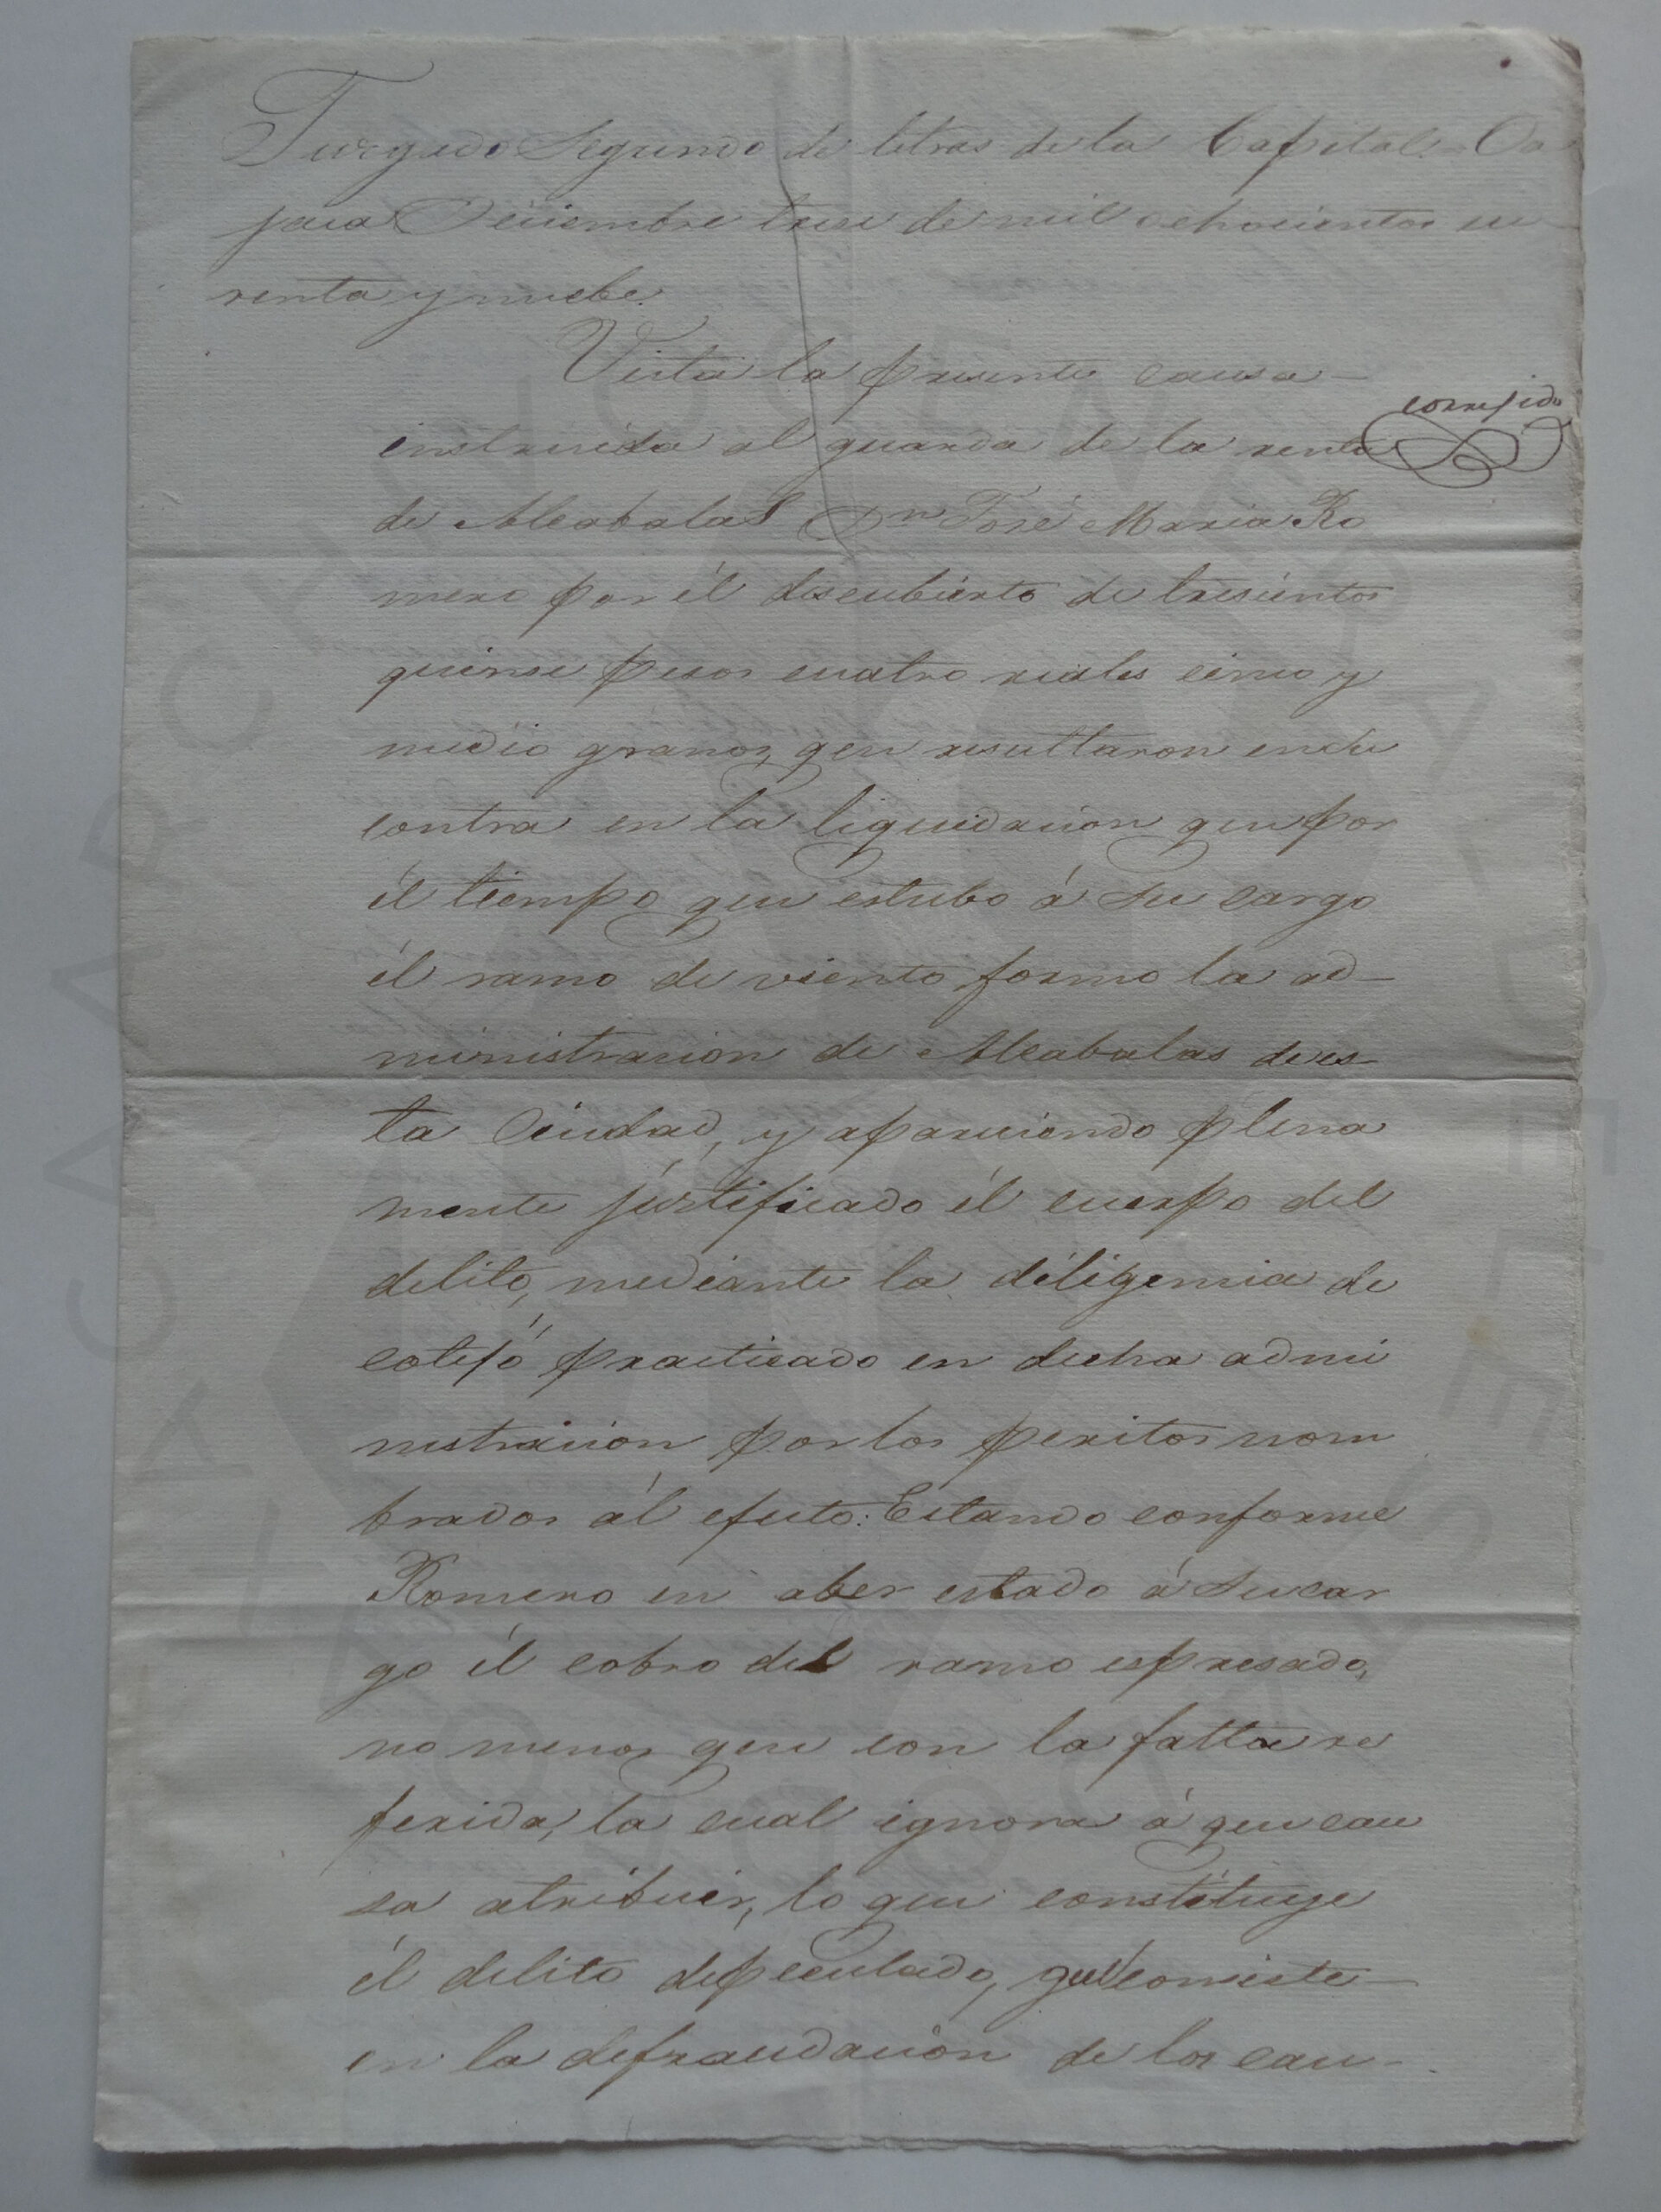 Juzgado Segundo de letras de la Capital. Oa
jaca Diciembre trece de mil ochocientos cua
renta y nuebe.
Vista la presente causa
corregido
instruida al guarda de la renta
de Alcabalas Dn José Maria Ro
mero por él descubierto de tresientos
quinse pesos cuatro reales cinco y
medio granos, que resultaron en su
contra en la liquidacion que por
él tiempo que estubo á su cargo
él ramo de viento formo la ad-
ministracion de Alcabalas de es-
ta Ciudad, y apareciendo plena
mente justificado él cuerpo del
delito, mediante la diligencia de
cotejó practicado en dicha admi
nistracion por los peritos nom
brados ál efecto: Estando conforme
Romero en aber estado á su car
go él cobro del ramo espresado,
no menos que con la falta re
ferida, la cual ignora á que cau
sa atribuir, lo que constituye
él delito de peculado, que consiste
en la defraudacion de los cau-
ARCHIVO GENERAL DEL ESTADO DE OAXACA